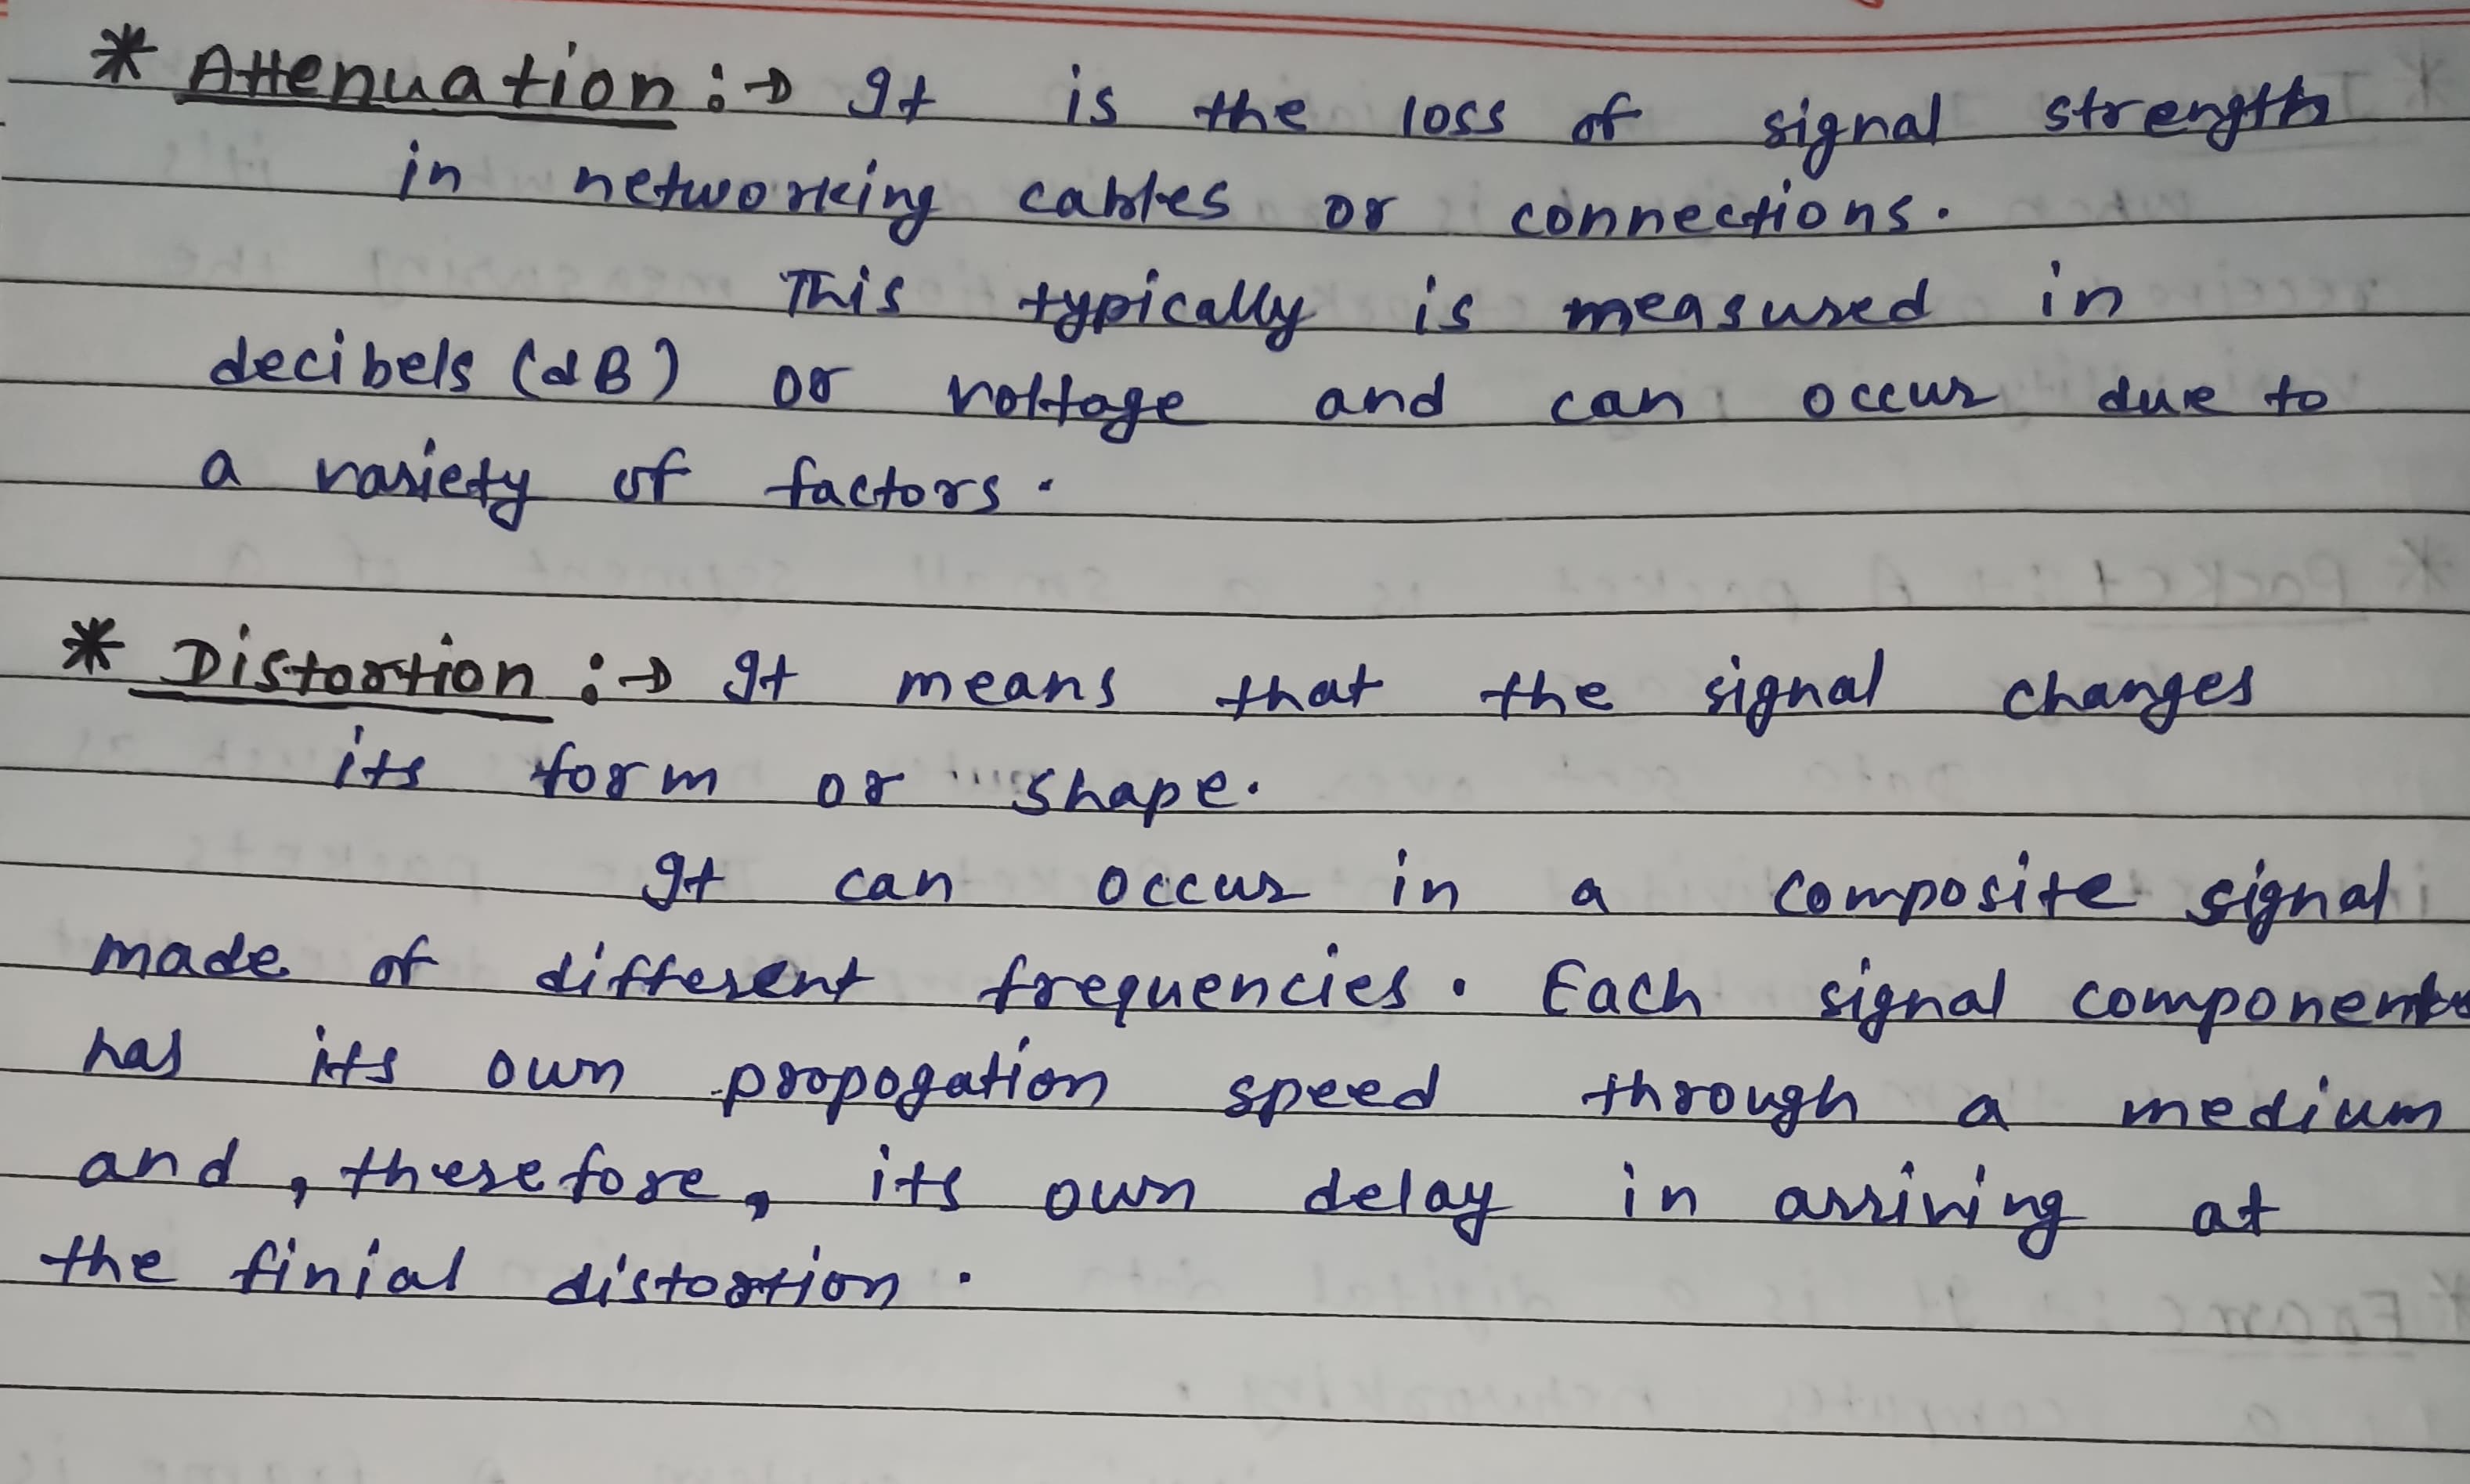 * Attenuation :→ It is the loss of signal strength
in networking cables or connections.
This typically is measured in
decibels (dB) or voltage and can occur due to
a variety of factors.
* Distortion :→ It means that the signal changes
its form or shape.
It can occur in a composite signal
made of different frequencies. Each signal components
has its own propogation speed through a medium
and, therefore, its own delay in arriving at
the finial distortion.